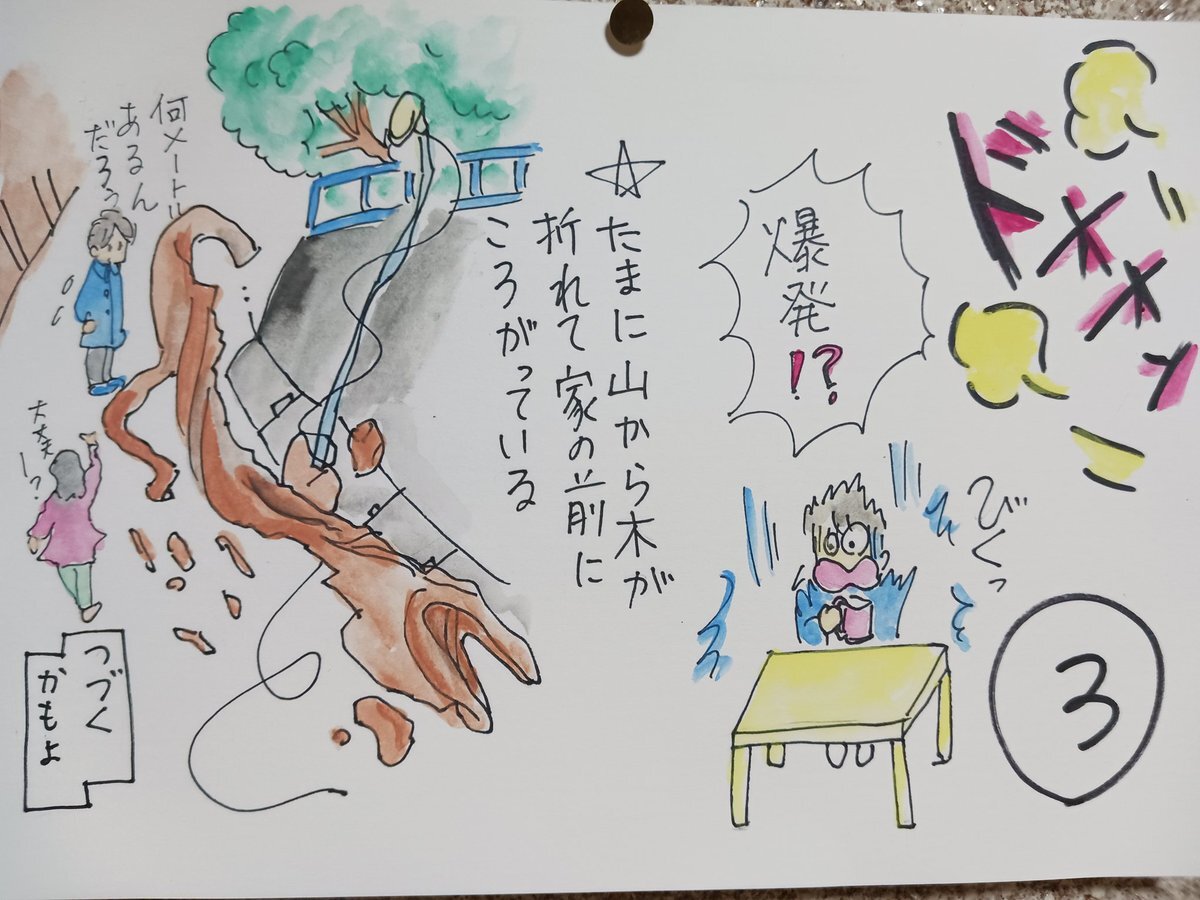 ③
ドドドーン
爆発
!?
びくっ
☆たまに山から木が
折れて家の前に
ころがっている
何メートル
あるん
だろう
大丈夫
ー?
つづく
かもよ